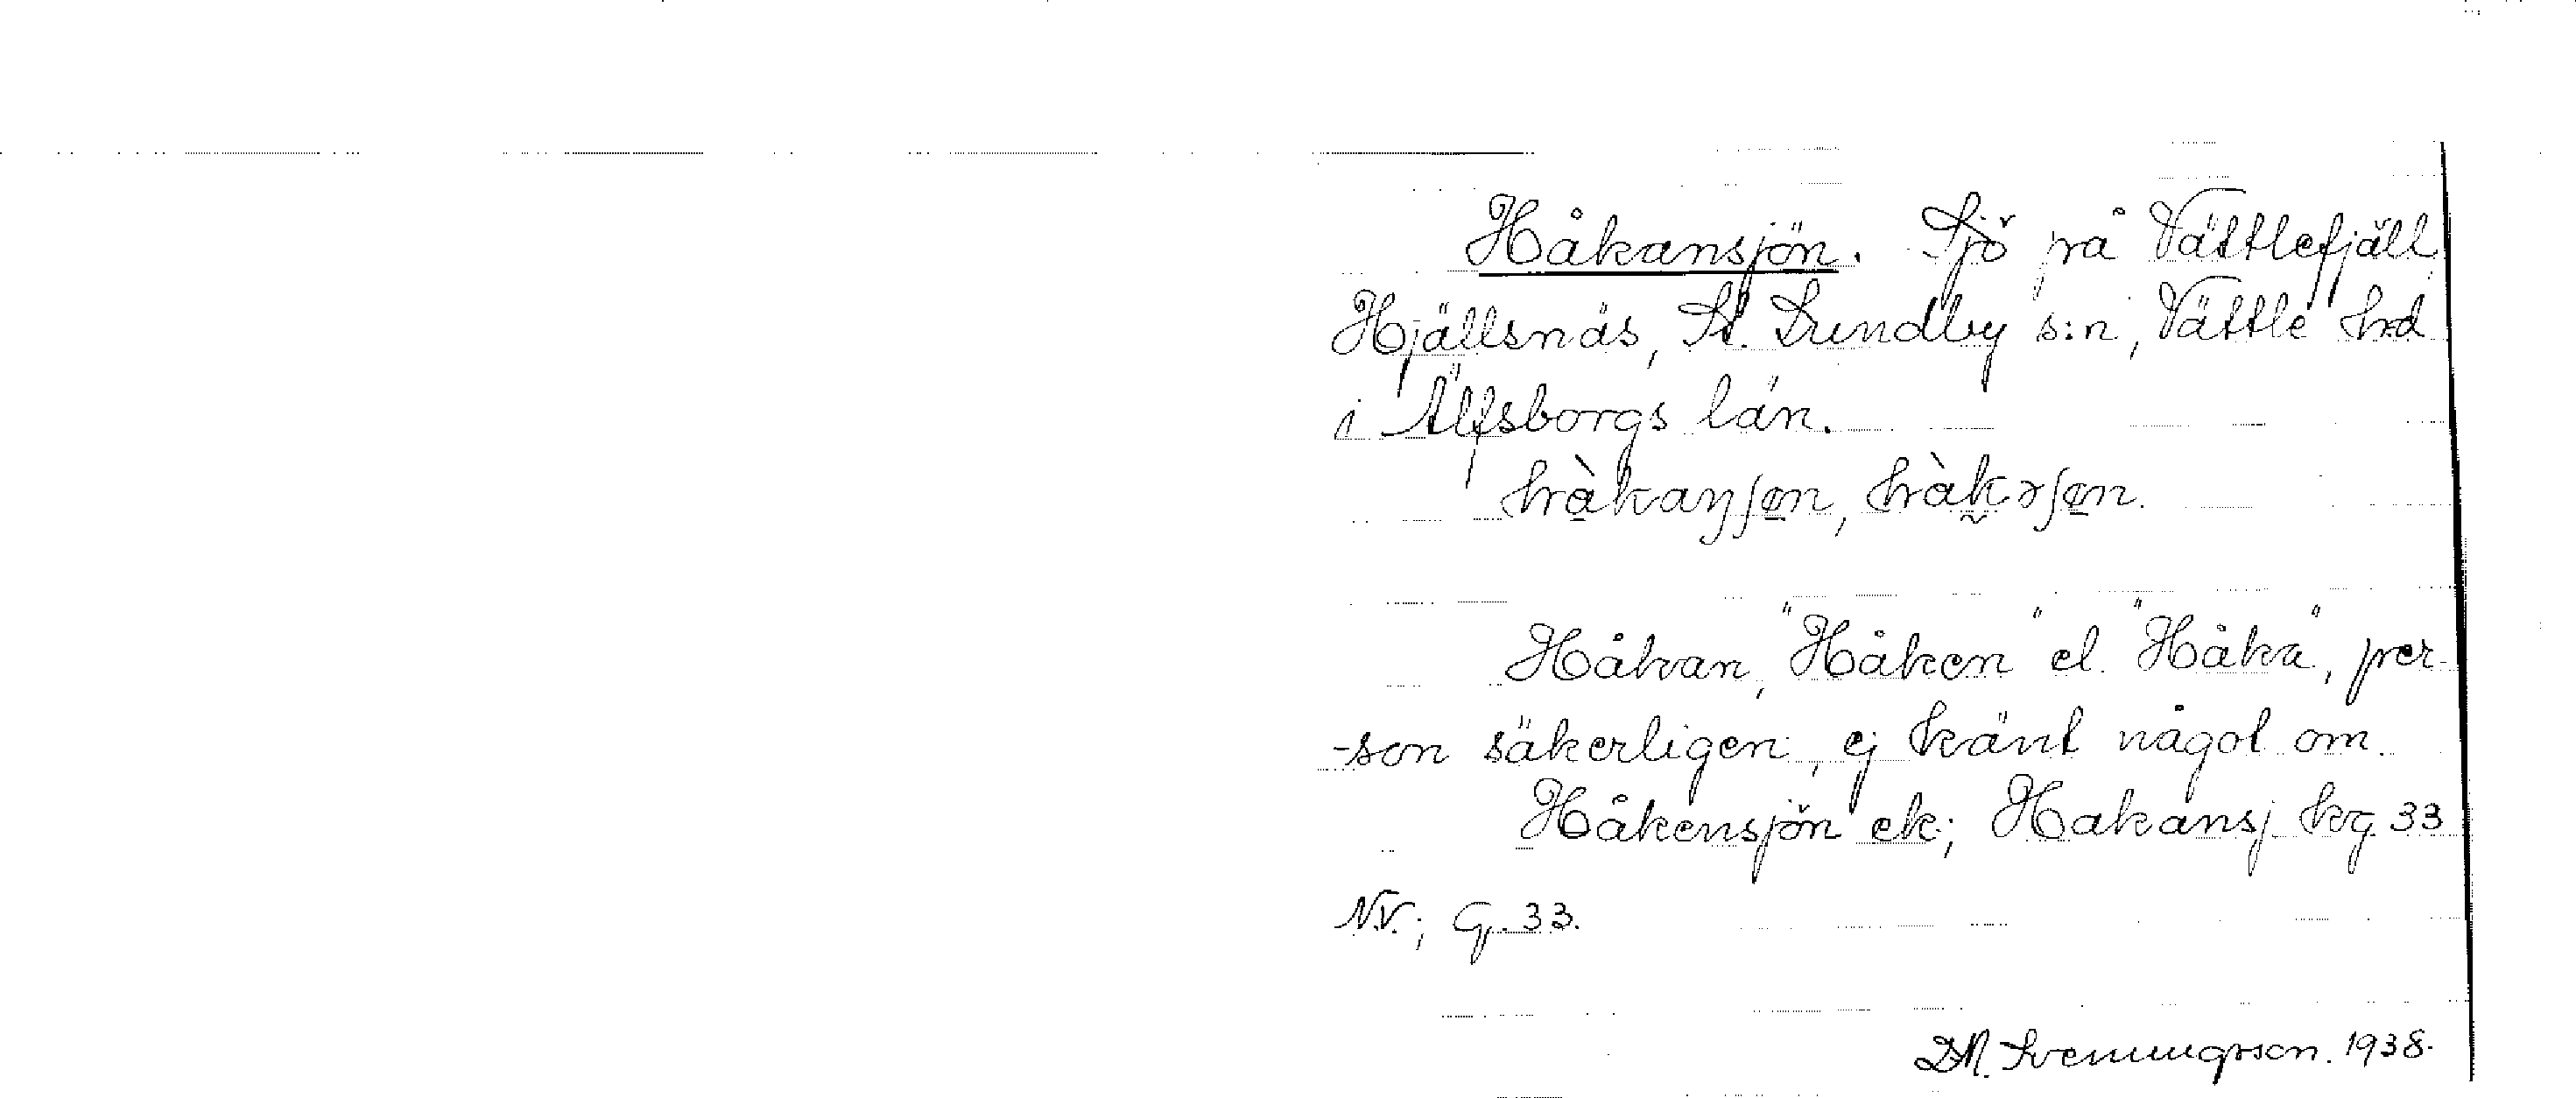 Håkansjön. Sjö på Vättlefjäll
Hjällsnäs, St. Lundby s:n, Vättle hd
i Älfsborgs län.
hàkaŋʃøn, hàkəʃøn.
Håkan, "Håken" el. "Håka", per-
-son säkerligen, ej känt något om.
Håkensjön ek; Hakansj kg 33
N.V.; G. 33.
Svenungsson. 1938.